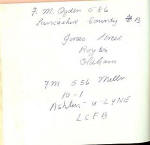 F. M. Ogden 586
Lancashire County
Jones Street
Royton
Oldham
FM 556 Miller
10-1
Ashton-u-LYNE
LCFB